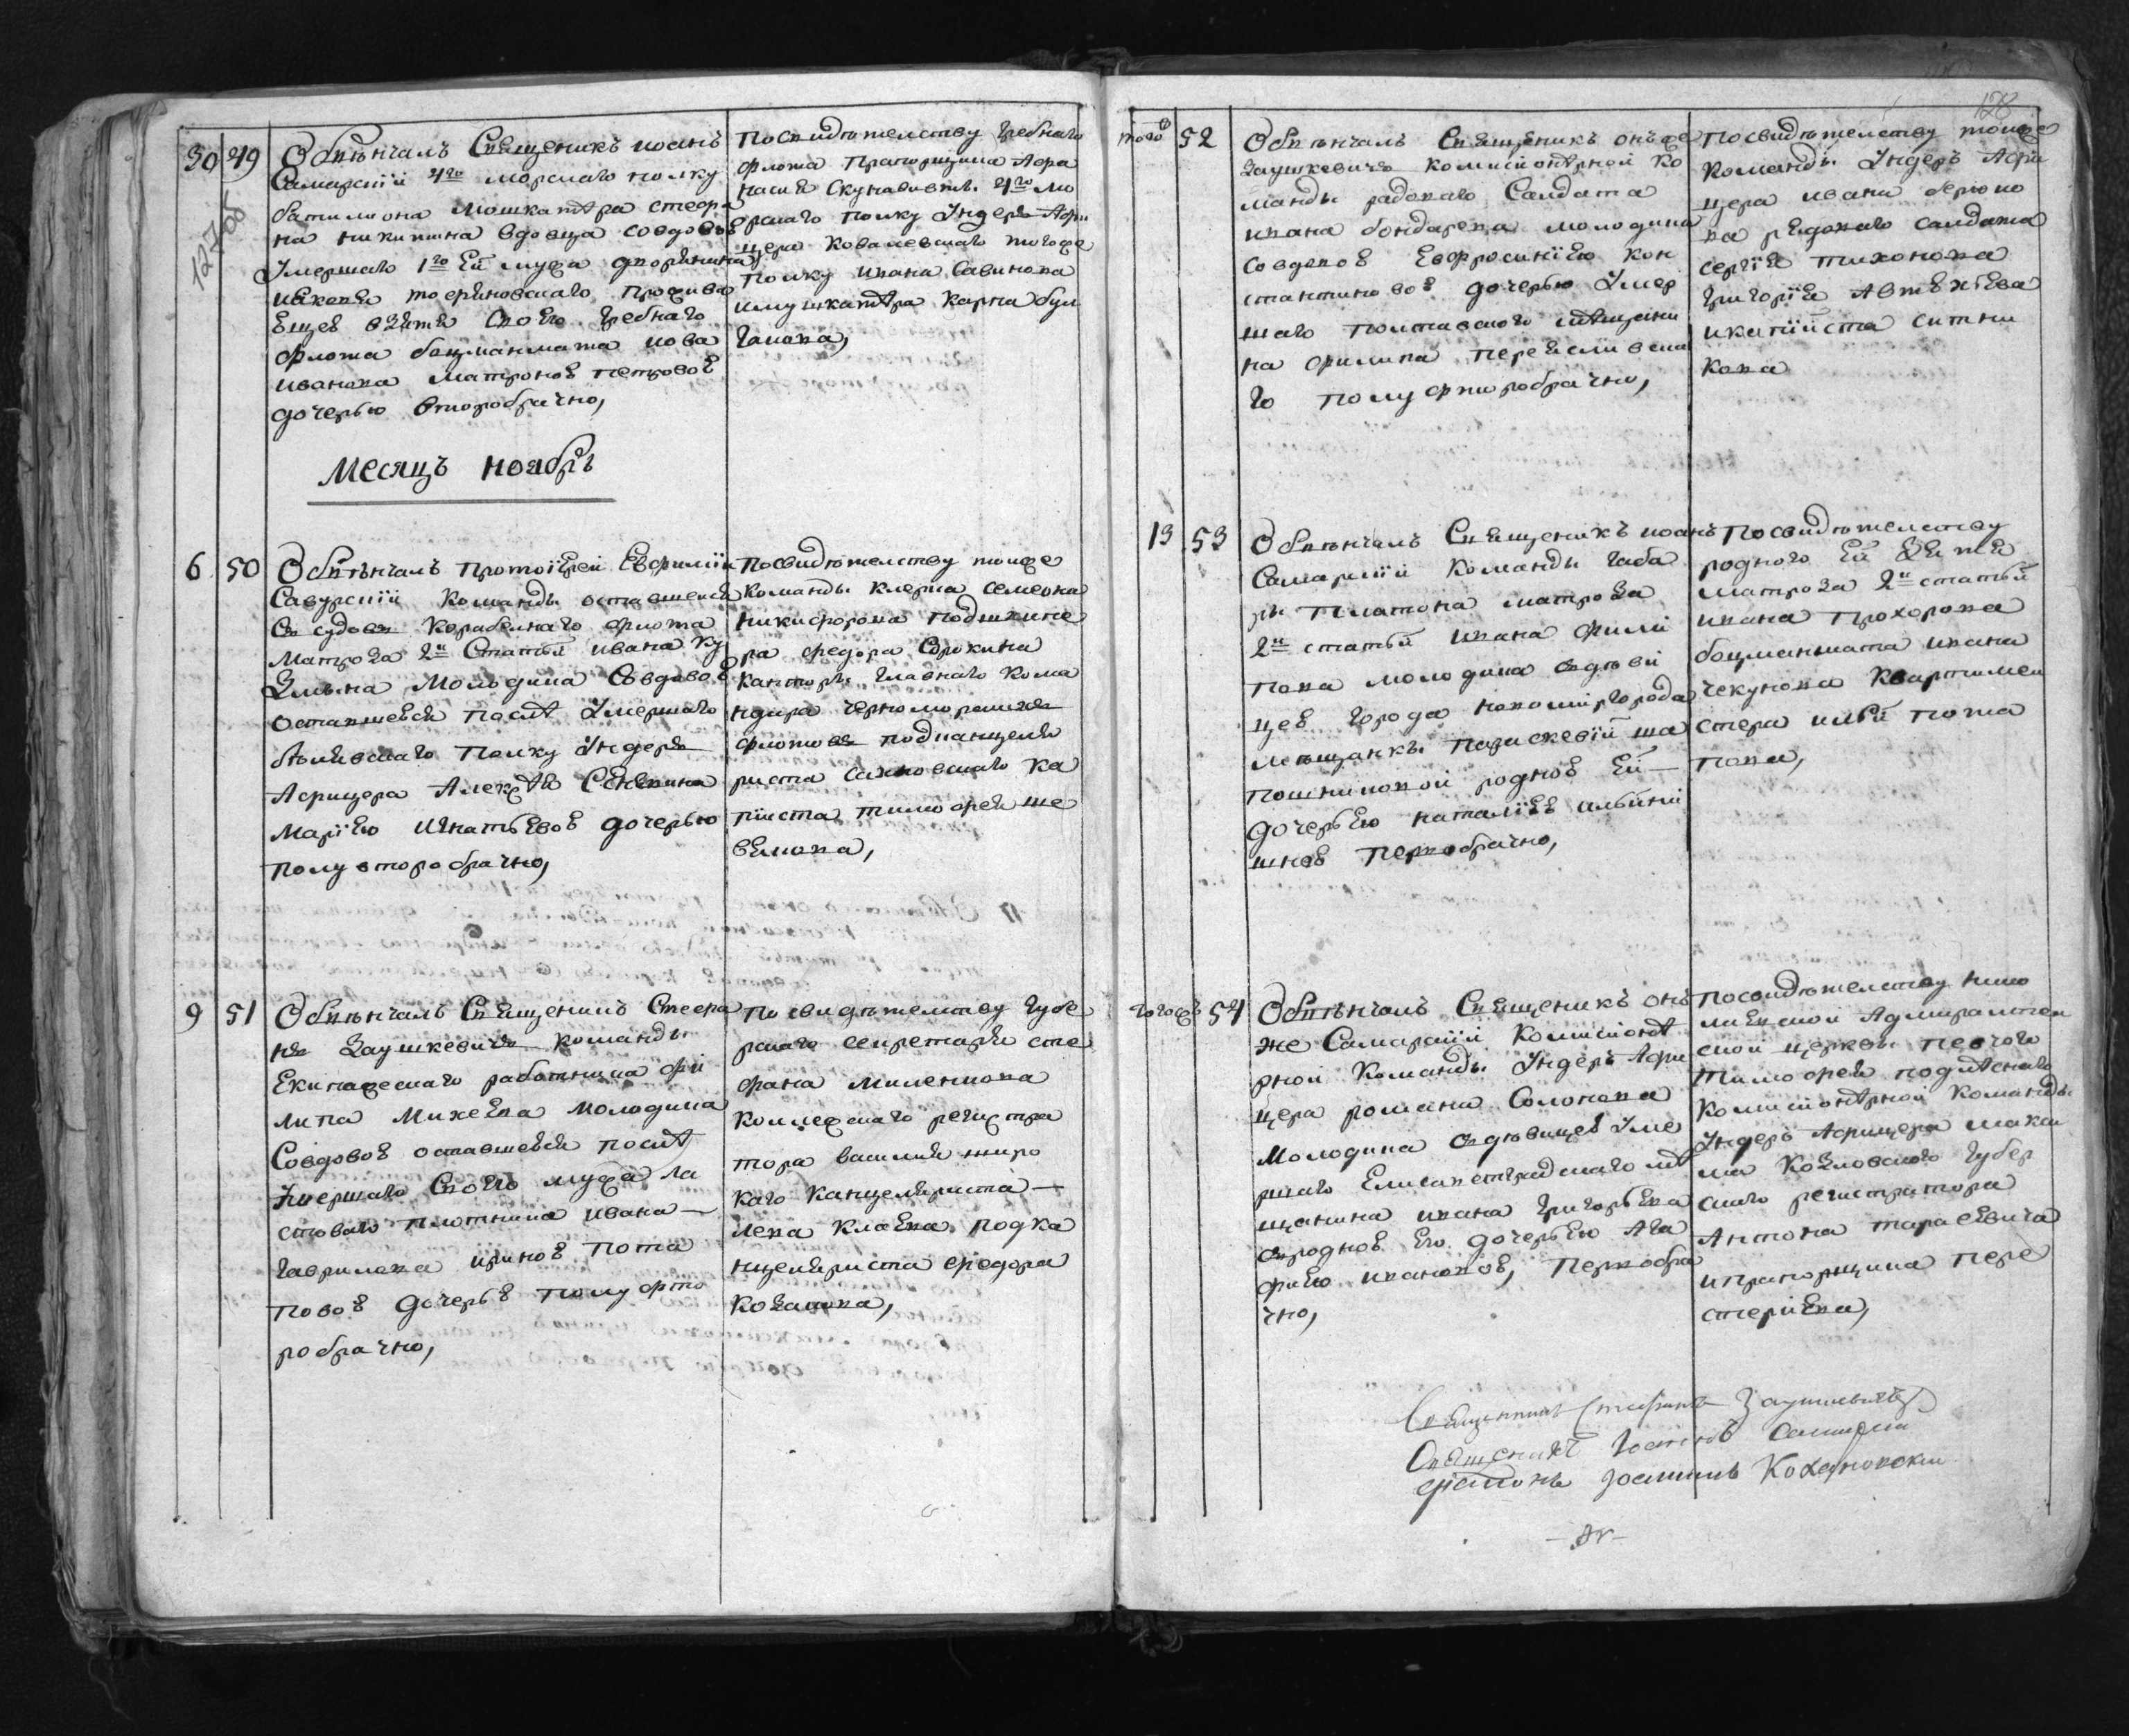 127об
30 49
Обвѣнчалъ Священикъ иоанъ
Самарскїй 4го морскаго полку
батилиона мошкатѣра стефа
на никитина вдовца совдовоѣ
Умершаго 1го Ей мужа дворянина
иякова проживаю
Ещеѣ взятя Своего гребнаго
флота боцманмата иова
Иванова матроноѣ петровоѣ
дочерью второбрачно,
Посвидѣтелству гребнаго
флота Прапорщика Афа
насия 4го мо
рскаго полку Ундеръ Афи
цера Ковалевскаго тогоже
Полку ивана Савинова
имушкатѣра Карпа бул
гакова,
Месяцъ ноябрь
6 50
Обвѣнчалъ Протоїерей Евфимїй
Савурскїй Команды оставшейся
Съ судовъ Корабелнаго флота
Матроза 2й Статьй ивана Ку
Змина Молодика Совдовоѣ
оставшеѣся послѣ Умершаго
бѣлевскаго Полку Ундеръ
Афицера Алексѣя
Марїею игнатьевоѣ дочерью
полувторобрачно,
Посвидѣтелству тоиже
Команды клерка семеона
Никифорова Подшкипе
ра федора Сорокина
Канторы главнаго Кома
ндира черноморскихъ
флотовъ подканцеля
риста ка
пиїста тимофея ше
велиова,
9 51
Обвѣнчалъ Священикъ Стефа
нъ Заушкевичь команды
Екипажескаго работника фи
липа Михеева молодика
Совдовоѣ оставшеѣся послѣ
Умершаго Своего мужа ла
стоваго плотника ивана
гаврилова ириноѣ Пота
повоѣ дочерьѣ полуфто
робрачно,
Посвидѣтелству губе
рскаго секретаря сте
фана миленкова
Коллежскаго регистра
тора василия широ
каго Канцеляриста
лева клаева подка
нцеляриста федора
Козакова,
128
тогож 52
Обвѣнчалъ Священикъ онъже
Заушкевичь комисионѣрной ко
манды радоваго Салдата
ивана бондарева молодика
совдовоѣ Евфросинїею Кон
стантиновоѣ дочерью Умер
шаго полтавскаго мѣщани
на филипа
го полуфторобрачно,
Посвидѣтелству тоиже
Команды Ундеръ Афи
цера ивана берюко
ва редоваго салдата
сергїя тихонова
григорїя Автѣхѣева
икапїйста ситни
кова
13 53
Обвѣнчалъ Священикъ иоанъ
Самарскїй Команды габа
ры Платона матроза
2й статьй ивана фили
пова молодика вдові
цеѣ города новомиргорода
мещанкы параскевїй ша
пошниковой родноѣ Ей
дочерьЕю наталїеѣ
шноѣ первобрачно,
Посвидѣтелству
родного Ей Зятя
матроза 2й статьй
ивана Прохорова
боцманмата ивана
чекунова Квартирмей
стера ильй пота
пова,
тогожъ 54
Обвѣнчалъ Священикъ онъ
же Самарскїй Комисионѣ
рной Команды Ундеръ Афи
цера романа Солопова
Молодика вдовицеѣ Уме
ршаго Елисаветградскаго мѣ
щанина ивана григорьева
дочерьЕю Ага
фиею ивановоѣ, Первобра
чно,
Посвидѣтелству нико
лаевской Адмиралтей
ской церквы певчого
тимофея
Комисионѣрной Команды
Ундеръ Афицера макси
ма Козловскаго Губер
скаго регистратора
Антона тарасевича
ипрапорщика Пере
стериева,
Священникъ Стефанъ Заушкевичь
Священикъ Иоаннъ Самарски
дїаконъ Иоаннъ Кохановски